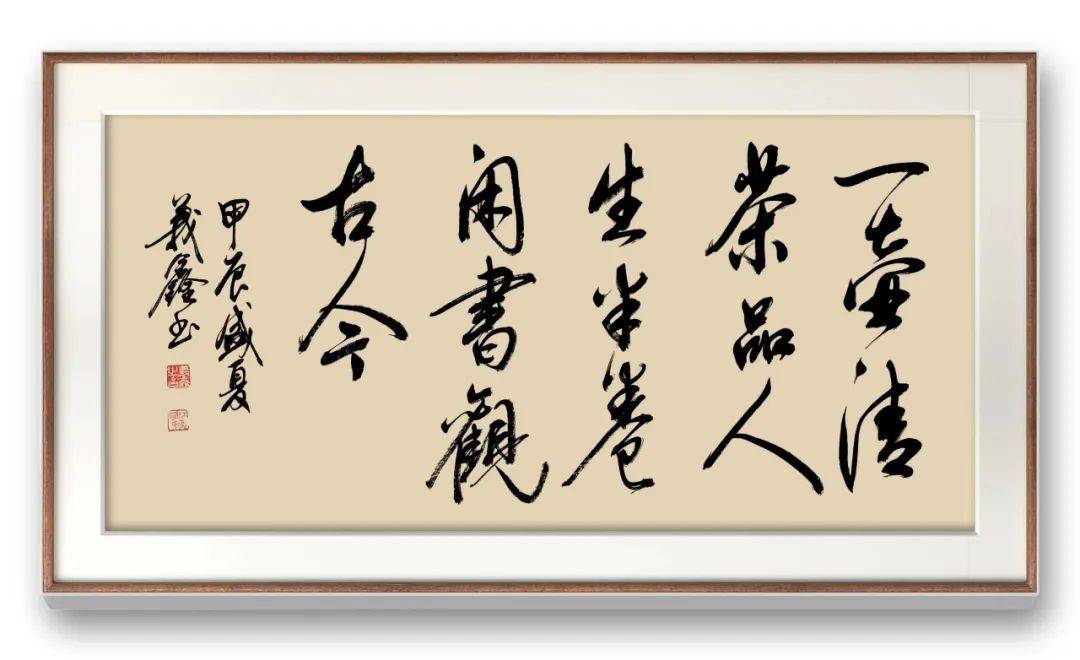 一壶清
茶品人
生半卷
闲書觀
古今
甲辰盛夏
義鑫书